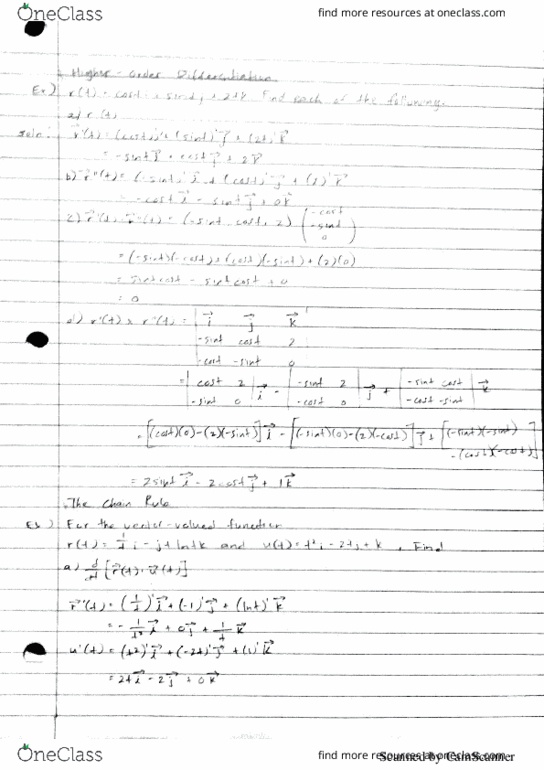 OneClass
find more resources at oneclass.com
Higher-Order Differentiation
Ex.) r(t) = cost i + sint j + 2tk. Find each of the following.
a) r'(t)
soln: r⃗'(t) = (cost)'i⃗ + (sint)'j⃗ + (2t)'k⃗
= -sint i⃗ + cost j⃗ + 2k⃗
b) r⃗''(t) = (-sint)'i⃗ + (cost)'j⃗ + (2)'k⃗
= -cost i⃗ - sint j⃗ + 0k⃗
c) r⃗'(t) · r⃗''(t) = (-sint, cost, 2) (-cost
-sint
0)
= (-sint)(-cost) + (cost)(-sint) + (2)(0)
= sint cost - sint cost + 0
= 0
d) r'(t) x r''(t) = | i⃗ j⃗ k⃗
-sint cost 2
-cost -sint 0
= | cost 2 | i⃗ - | -sint 2 | j⃗ + | -sint cost | k⃗
| -sint 0 | | -cost 0 | | -cost -sint |
= [(cost)(0) - (2)(-sint)] i⃗ - [(-sint)(0) - (2)(-cost)] j⃗ + [(-sint)(-sint)
- (cost)(-cost)]
= 2sint i⃗ - 2cost j⃗ + 1k⃗
The Chain Rule
Ex.) For the vector-valued function
r(t) = 1/t i - j + lnt k and u(t) = t² i - 2tj + k, Find
a) d/dt [r⃗(t) · u⃗(t)]
r⃗'(t) = (1/t)'i⃗ + (-1)'j⃗ + (lnt)'k⃗
= -1/t² i⃗ + 0j⃗ + 1/t k⃗
u'(t) = (t²)'i⃗ + (-2t)'j⃗ + (1)'k⃗
= 2t i⃗ - 2j⃗ + 0k⃗
OneClass
find more resources at oneclass.com
Scanned by CamScanner